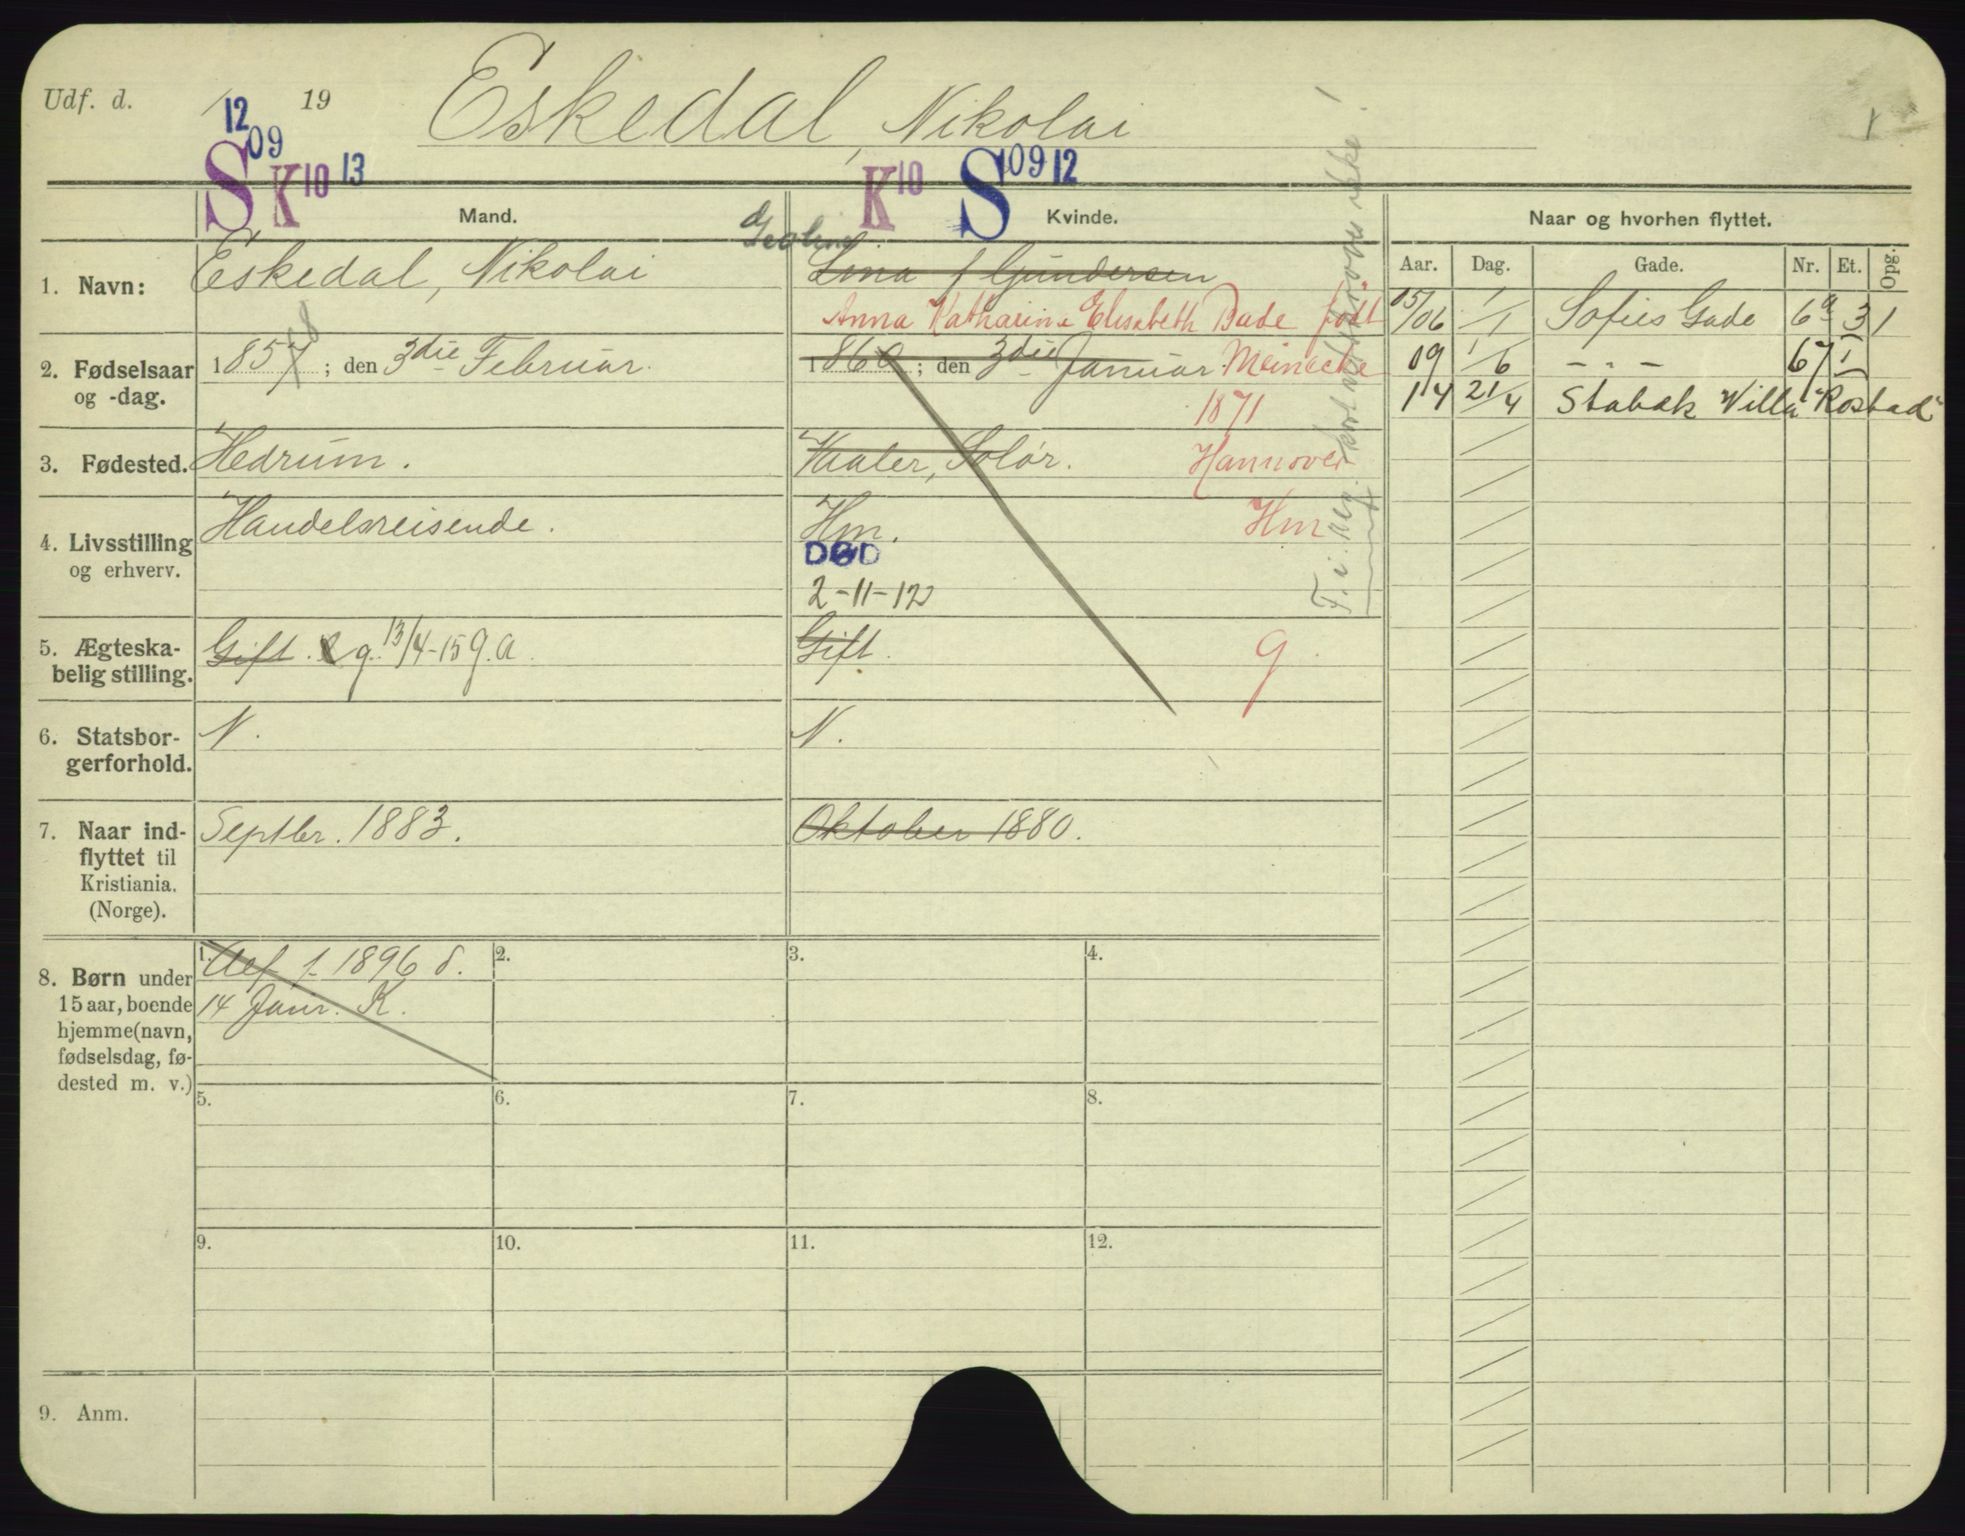 Udf. d. 19
Eskedal, Nikolai
12
09
S K 10 13
K 10 S 09 12
Mand.
Kvinde.
Naar og hvorhen flyttet.
Aar. Dag. Gade. Nr. Et. Opg.
1. Navn:
Eskedal, Nikolai
Lona f Gundersen
Anna Katharine Elisabeth Bade født
Meinecke
2. Fødselsaar
og -dag.
1857 8; den 3die Februar.
1860; den 3die Januar.
1871
3. Fødested.
Hedrum.
Vaaler, Solør.
Hannover
4. Livsstilling
og erhverv.
Handelsreisende.
Hm.
Hm
DØD
2-11-12
5. Ægteska-
belig stilling.
Gift. g. 13/4-15 g. a.
Gift.
g.
6. Statsbor-
gerforhold.
N.
N.
7. Naar ind-
flyttet til
Kristiania.
(Norge).
Septbr. 1883.
Oktober 1880.
05/06 1/1 Sofies Gade 6a 3 1
09 1/6 - " - 67 1
14 21/4 Stabæk Villa "Rostad"
8. Børn under
15 aar, boende
hjemme (navn,
fødselsdag, fø-
dested m. v.)
1. Alf f. 1896 d.
14 Janr. K.
2.
3.
4.
5.
6.
7.
8.
9.
10.
11.
12.
9. Anm.